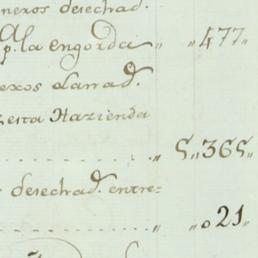 neros desechad.ˢ
p.ª la engorda „ „477„
exos Lanrad.ˢ
esta Hazienda
. . . . . . . . . . „ 5„365„
desechad.ˢ entre=
. . . . . . . . . . „ „021„